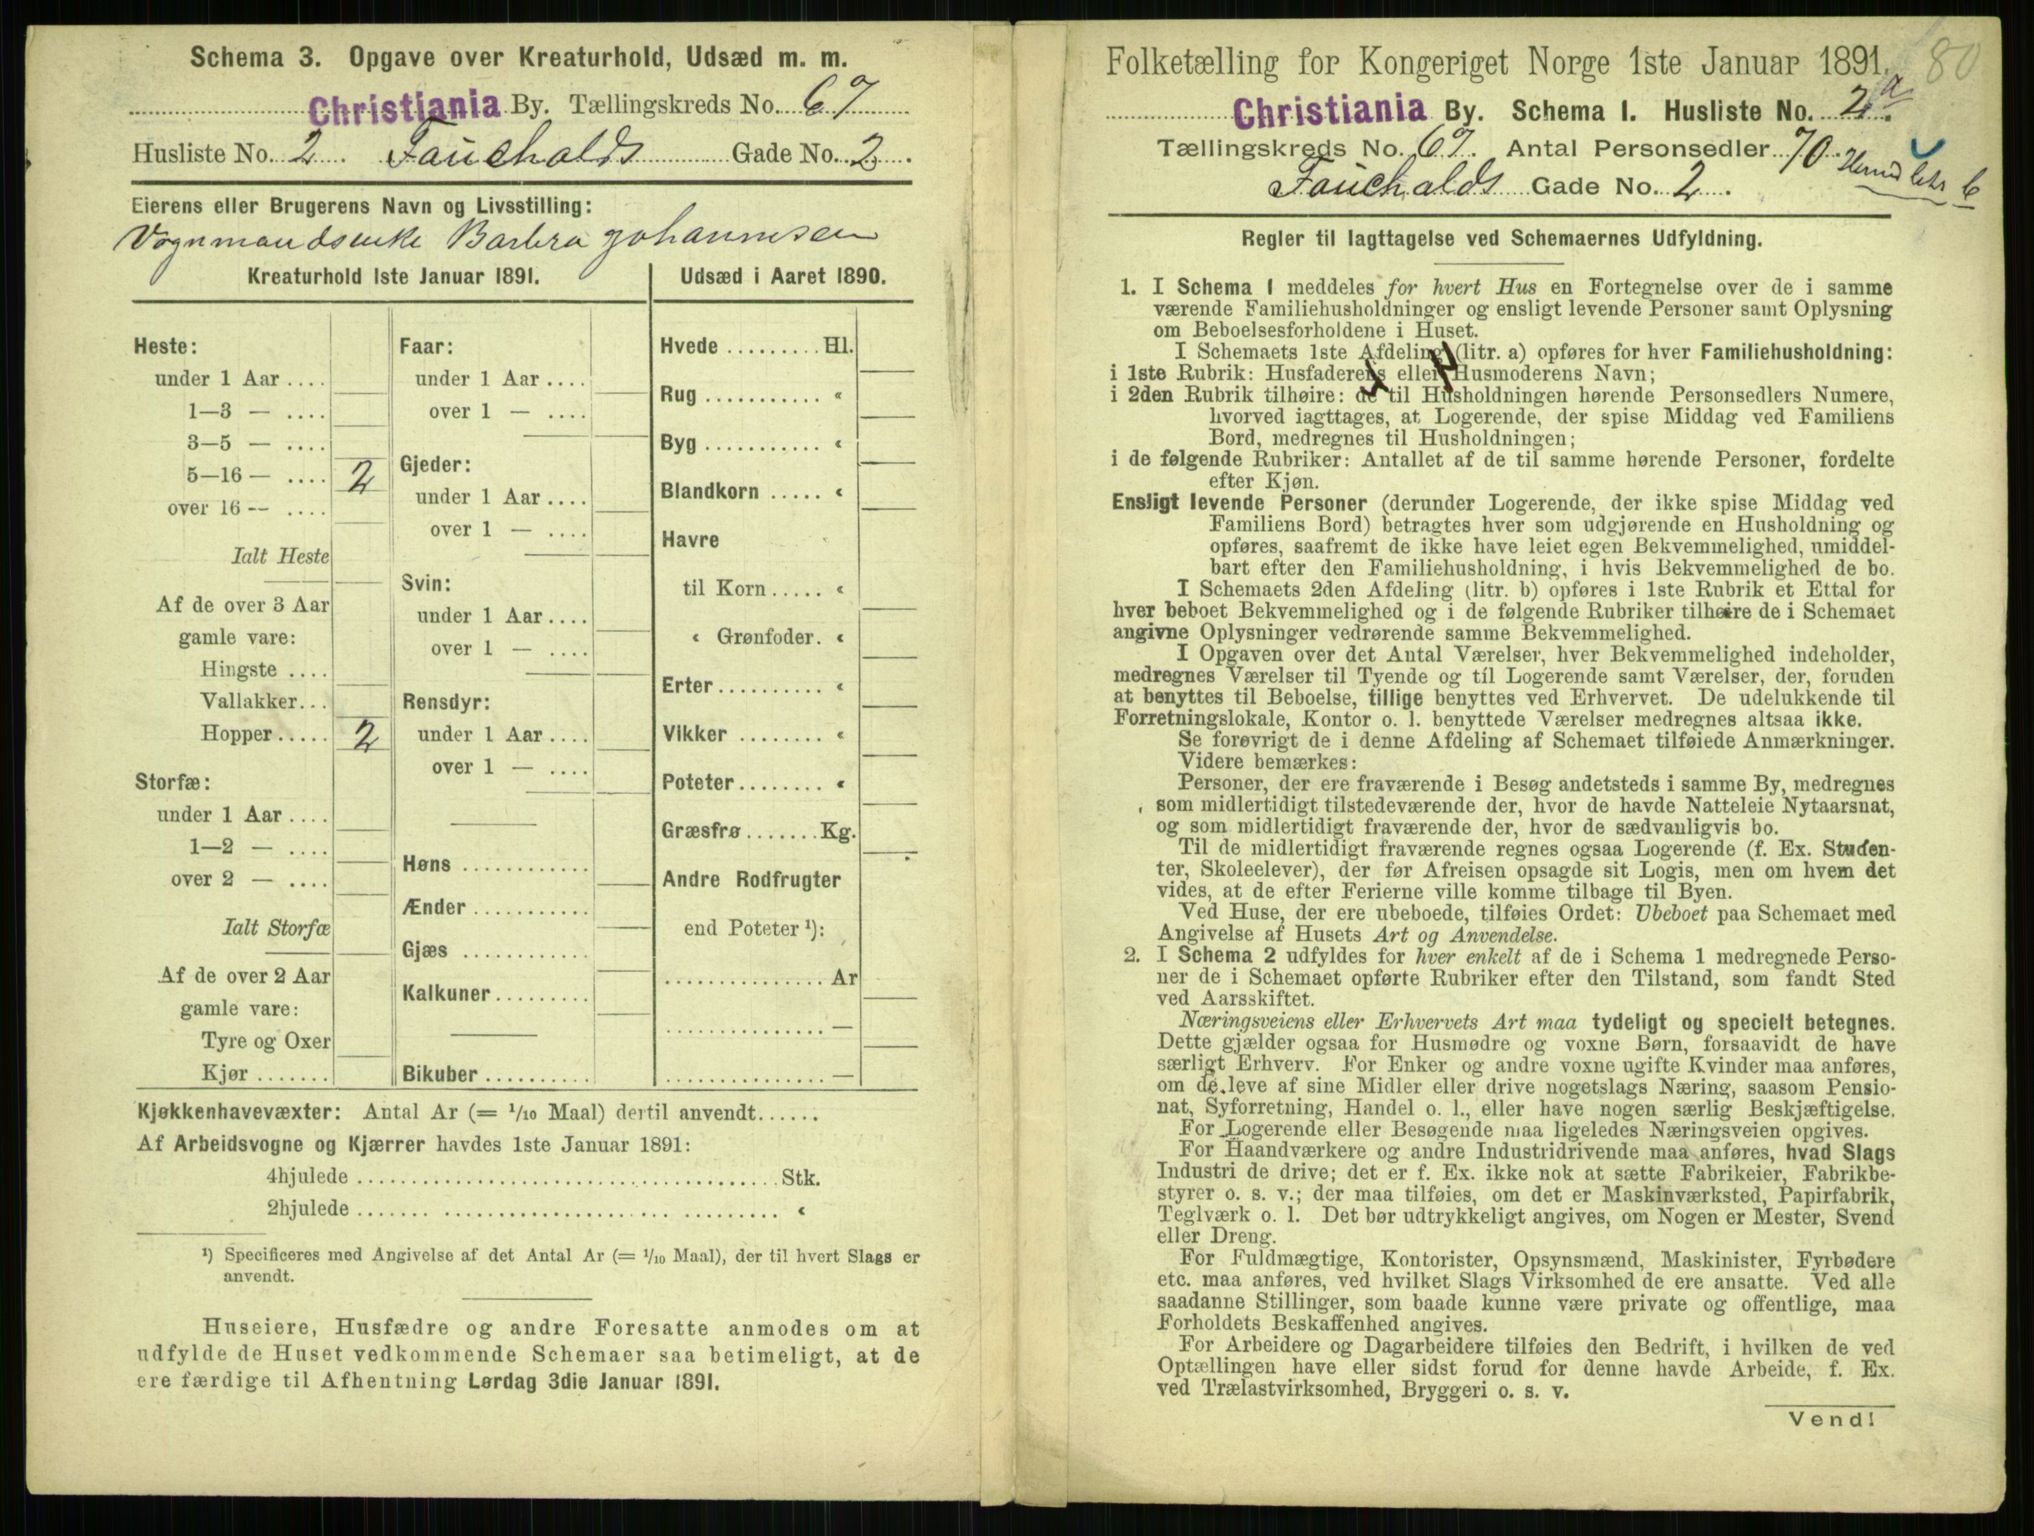 Schema 3. Opgave over Kreaturhold, Udsæd m. m.
Christiania By. Tællingskreds No. 67
Husliste No. 2 Faucholds Gade No. 2
Eierens eller Brugerens Navn og Livsstilling:
Vognmandsenke Barbra Johannesen
Kreaturhold 1ste Januar 1891.
Heste:
under 1 Aar ....
1—3 — ....
3—5 — ....
5—16 — .... 2
over 16 -- ....
Ialt Heste
Af de over 3 Aar
gamle vare:
Hingste ....
Vallakker...
Hopper..... 2
Storfæ:
under 1 Aar ....
1—2 — ....
over 2 — ....
Ialt Storfæ
Af de over 2 Aar
gamle vare:
Tyre og Oxer
Kjør .......
Faar:
under 1 Aar ....
over 1 — ....
Gjeder:
under 1 Aar ....
over 1 — ....
Svin:
under 1 Aar ....
over 1 — ....
Rensdyr:
under 1 Aar ....
over 1 — ....
Høns ............
Ænder ...........
Gjæs ............
Kalkuner.........
Bikuber..........
Udsæd i Aaret 1890.
Hvede ......... Hl.
Rug ........... «
Byg ........... «
Blandkorn ..... «
Havre
til Korn ..... «
« Grønfoder. «
Erter.......... «
Vikker ........ «
Poteter........ «
Græsfrø....... Kg.
Andre Rodfrugter
end Poteter ¹):
............... Ar
............... —
............... —
Kjøkkenhavevæxter: Antal Ar (= 1/10 Maal) dertil anvendt......
Af Arbeidsvogne og Kjærrer havdes 1ste Januar 1891:
4hjulede ........................................ Stk.
2hjulede ....... ..................... ......... «
¹) Specificeres med Angivelse af det Antal Ar (= 1/10 Maal), der til hvert Slags er
anvendt.
Huseiere, Husfædre og andre Foresatte anmodes om at
udfylde de Huset vedkommende Schemaer saa betimeligt, at de
ere færdige til Afhentning Lørdag 3die Januar 1891.
80
Folketælling for Kongeriget Norge 1ste Januar 1891.
Christiania By. Schema I. Husliste No. 2 a.
Tællingskreds No. 67. Antal Personsedler 70
Faucholds Gade No. 2.
Regler til Iagttagelse ved Schemaernes Udfyldning.
1. I Schema 1 meddeles for hvert Hus en Fortegnelse over de i samme
værende Familiehusholdninger og ensligt levende Personer samt Oplysning
om Beboelsesforholdene i Huset.
I Schemaets 1ste Afdeling (litr. a) opføres for hver Familiehusholdning:
i 1ste Rubrik: Husfaderens eller Husmoderens Navn;
i 2den Rubrik tilhøire: de til Husholdningen hørende Personsedlers Numere,
hvorved iagttages, at Logerende, der spise Middag ved Familiens
Bord, medregnes til Husholdningen;
i de følgende Rubriker: Antallet af de til samme hørende Personer, fordelte
efter Kjøn.
Ensligt levende Personer (derunder Logerende, der ikke spise Middag ved
Familiens Bord) betragtes hver som udgjørende en Husholdning og
opføres, saafremt de ikke have leiet egen Bekvemmelighed, umiddel-
bart efter den Familiehusholdning, i hvis Bekvemmelighed de bo.
I Schemaets 2den Afdeling (litr. b) opføres i 1ste Rubrik et Ettal for
hver beboet Bekvemmelighed og i de følgende Rubriker tilhøire de i Schemaet
angivne Oplysninger vedrørende samme Bekvemmelighed.
I Opgaven over det Antal Værelser, hver Bekvemmelighed indeholder,
medregnes Værelser til Tyende og til Logerende samt Værelser, der, foruden
at benyttes til Beboelse, tillige benyttes ved Erhvervet. De udelukkende til
Forretningslokale, Kontor o. l. benyttede Værelser medregnes altsaa ikke.
Se forøvrigt de i denne Afdeling af Schemaet tilføiede Anmærkninger.
Videre bemærkes:
Personer, der ere fraværende i Besøg andetsteds i samme By, medregnes
som midlertidigt tilstedeværende der, hvor de havde Natteleie Nytaarsnat,
og som midlertidigt fraværende der, hvor de sædvanligvis bo.
Til de midlertidigt fraværende regnes ogsaa Logerende (f. Ex. Studen-
ter, Skoleelever), der før Afreisen opsagde sit Logis, men om hvem det
vides, at de efter Ferierne ville komme tilbage til Byen.
Ved Huse, der ere ubeboede, tilføies Ordet: Ubeboet paa Schemaet med
Angivelse af Husets Art og Anvendelse.
2. I Schema 2 udfyldes for hver enkelt af de i Schema 1 medregnede Perso-
ner de i Schemaet opførte Rubriker efter den Tilstand, som fandt Sted
ved Aarsskiftet.
Næringsveiens eller Erhvervets Art maa tydeligt og specielt betegnes.
Dette gjælder ogsaa for Husmødre og voxne Børn, forsaavidt de have
særligt Erhverv. For Enker og andre voxne ugifte Kvinder maa anføres,
om de leve af sine Midler eller drive nogetslags Næring, saasom Pensio-
nat, Syforretning, Handel o. l., eller have nogen særlig Beskjæftigelse.
For Logerende eller Besøgende maa ligeledes Næringsveien opgives.
For Haandværkere og andre Industridrivende maa anføres, hvad Slags
Industri de drive; det er f. Ex. ikke nok at sætte Fabrikeier, Fabrikbe-
styrer o. s. v.; der maa tilføies, om det er Maskinværksted, Papirfabrik,
Teglværk o. l. Det bør udtrykkeligt angives, om Nogen er Mester, Svend
eller Dreng.
For Fuldmægtige, Kontorister, Opsynsmænd, Maskinister, Fyrbødere
etc. maa anføres, ved hvilket Slags Virksomhed de ere ansatte. Ved alle
saadanne Stillinger, som baade kunne være private og offentlige, maa
Forholdets Beskaffenhed angives.
For Arbeidere og Dagarbeidere tilføies den Bedrift, i hvilken de ved
Optællingen have eller sidst forud for denne havde Arbeide, f. Ex.
ved Trælastvirksomhed, Bryggeri o. s. v.
Vend!